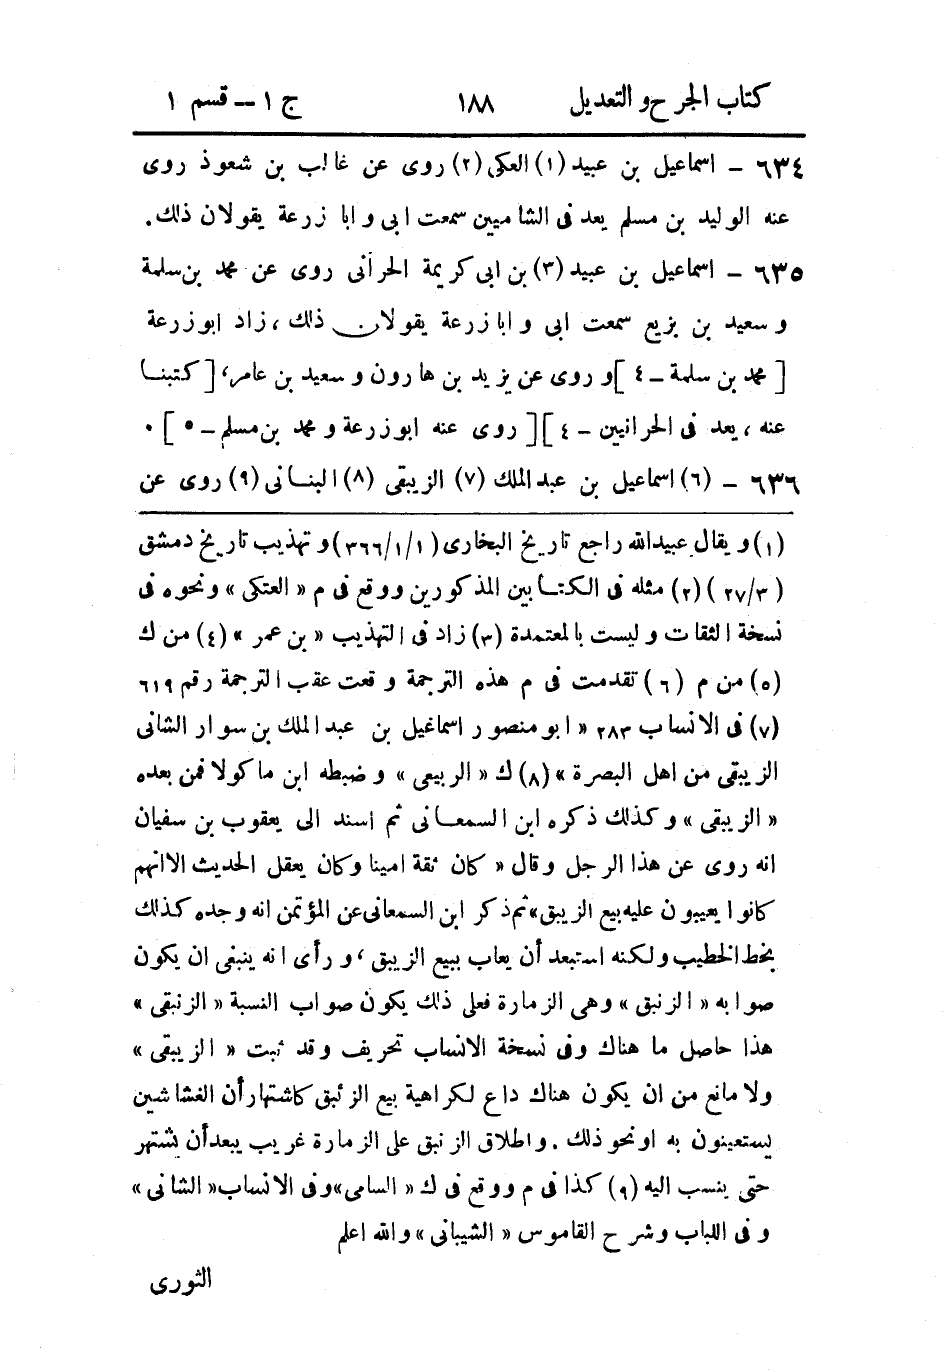 كتاب الجرح والتعديل ١٨٨ ج ١ – قسم ١
٦٣٤ – اسماعيل بن عبيد (١) العكى (٢) روى عن غالب بن شعوذ روى
عنه الوليد بن مسلم يعد فى الشاميين سمعت ابى و ابا زرعة يقولان ذلك.
٦٣٥ – اسماعيل بن عبيد (٣) بن ابى كريمة الحرانى روى عن محمد بن سلمة
و سعيد بن بزيع سمعت ابى و ابا زرعة يقولان ذلك، زاد ابو زرعة
[محمد بن سلمة – ٤] و روى عن يزيد بن هارون و سعيد بن عامر، [كتبنا
عنه، يعد فى الحرانيين – ٤] [روى عنه ابو زرعة و محمد بن مسلم – ٥].
٦٣٦ – (٦) اسماعيل بن عبد الملك (٧) الزيبقى (٨) البنانى (٩) روى عن
(١) و يقال عبيد الله راجع تاريخ البخارى (١/١/٣٦٦) و تهذيب تاريخ دمشق
(٣/٢٧) (٢) مثله فى الكتابين المذكورين ووقع فى م « العتكى » ونحوه فى
نسخة الثقات وليست بالمعتمدة (٣) زاد فى التهذيب « بن عمر » (٤) من ك
(٥) من م (٦) تقدمت فى م هذه الترجمة وقعت عقب الترجمة رقم ٦١٩
(٧) فى الانساب ٢٨٣ « ابو منصور اسماعيل بن عبد الملك بن سوار الشانى
الزيبقى من اهل البصرة » (٨) ك « الربيعى » و ضبطه ابن ماكولا فمن بعده
« الزيبقى » وكذلك ذكره ابن السمعانى ثم اسند الى يعقوب بن سفيان
انه روى عن هذا الرجل وقال « كان ثقة امينا وكان يعقل الحديث الا انهم
كانوا يعيبون عليه بيع الزيبق » ثم ذكر ابن السمعانى عن المؤتمن انه وجده كذلك
بخط الخطيب ولكنه استبعد أن يعاب ببيع الزيبق، و رأى انه ينبغى ان يكون
صوابه « الزنبق » وهى الزمارة فعلى ذلك يكون صواب النسبة « الزنبقى »
هذا حاصل ما هناك وفى نسخة الانساب تحريف وقد ثبت « الزيبقى »
ولا مانع من ان يكون هناك داع لكراهية بيع الزئبق كاشتهار أن الغشاشين
يستعينون به اونحو ذلك. واطلاق الزنبق على الزمارة غريب يبعد أن يشتهر
حتى ينسب اليه (٩) كذا فى م ووقع فى ك « السامى » وفى الانساب « الشانى »
و فى اللباب وشرح القاموس « الشيبانى » والله اعلم
الثورى